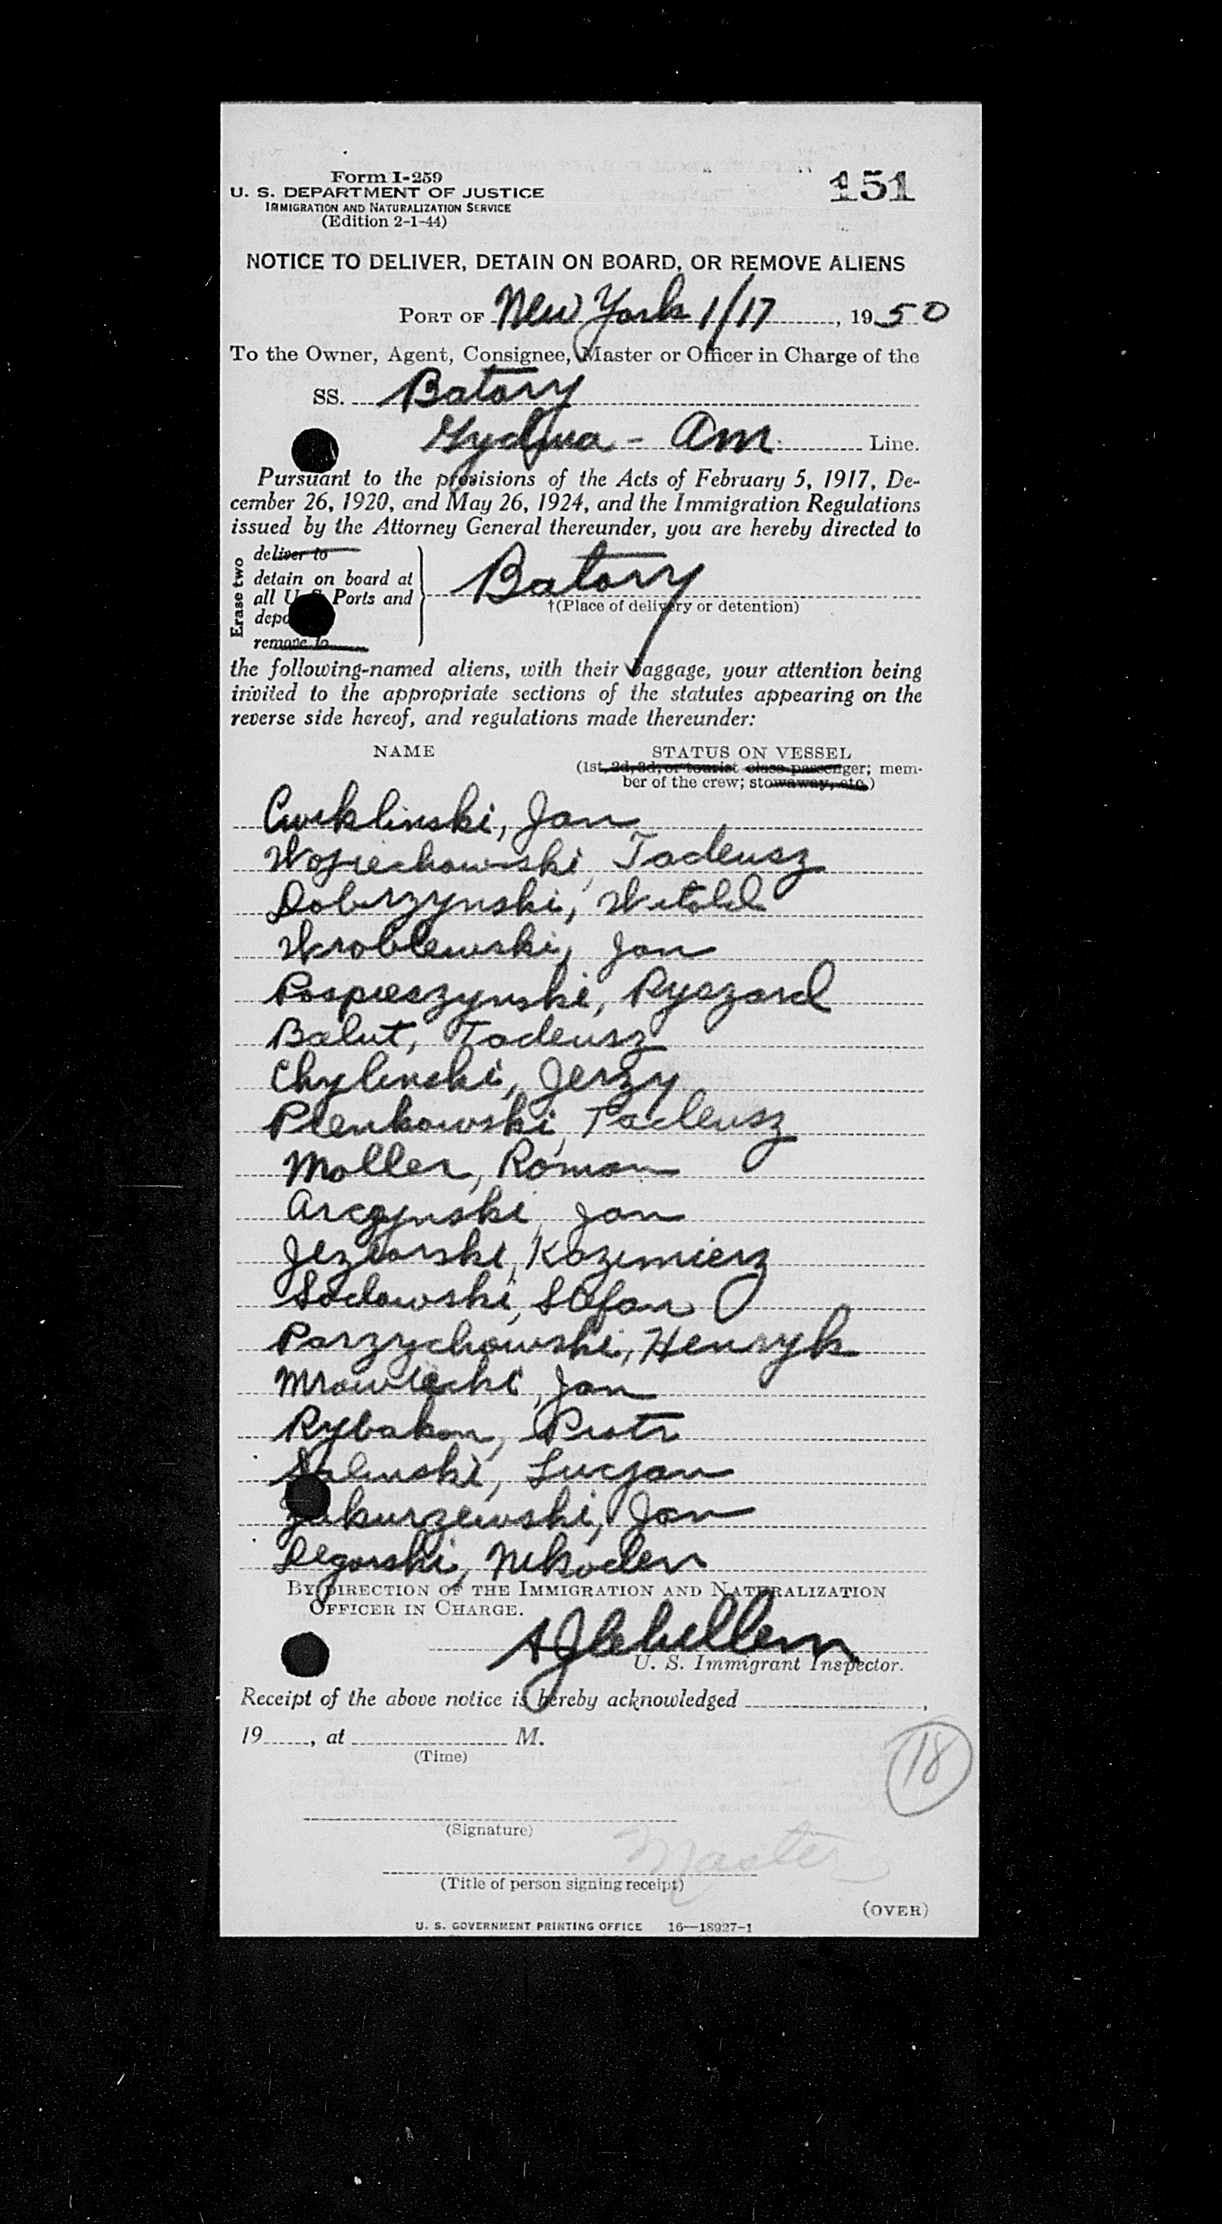 Form I-259
U. S. DEPARTMENT OF JUSTICE
IMMIGRATION AND NATURALIZATION SERVICE
(Edition 2-1-44)
151
NOTICE TO DELIVER, DETAIN ON BOARD, OR REMOVE ALIENS
PORT OF New York 1/17, 1950
To the Owner, Agent, Consignee, Master or Officer in Charge of the
SS. Batory
Gydynia - Am. Line.
Pursuant to the provisions of the Acts of February 5, 1917, De-
cember 26, 1920, and May 26, 1924, and the Immigration Regulations
issued by the Attorney General thereunder, you are hereby directed to
Erase two
deliver to
detain on board at
all U. S. Ports and
remove to
Batory
†(Place of delivery or detention)
the following-named aliens, with their baggage, your attention being
invited to the appropriate sections of the statutes appearing on the
reverse side hereof, and regulations made thereunder:
NAME STATUS ON VESSEL
(1st, 2d, 3d, or tourist class passenger; mem-
ber of the crew; stowaway, etc.)
Cwiklinski, Jan
Wojciechowski, Tadeusz
Dobrzynski, Witold
Wroblewski, Jan
Pospieszynski, Ryszard
Balut, Tadeusz
Chylinski, Jerzy
Plenkowski, Tadeusz
Moller, Roman
Arczynski, Jan
Jeziorski, Kazimierz
Sadowski, Stefan
Parzychowski, Henryk
Jan
Rybakon, Piotr
Lucjan
Jan
Degorski, Nikodem
BY DIRECTION OF THE IMMIGRATION AND NATURALIZATION
OFFICER IN CHARGE.
U. S. Immigrant Inspector.
Receipt of the above notice is hereby acknowledged ,
19 , at M.
(Time)
18
(Signature)
Master
(Title of person signing receipt)
(OVER)
U. S. GOVERNMENT PRINTING OFFICE 16—18927-1